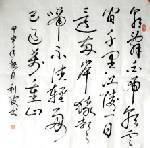 朝辭白帝彩雲
間千里江陵一日
還兩岸猿聲
啼不住輕舟
已過萬重山
甲申